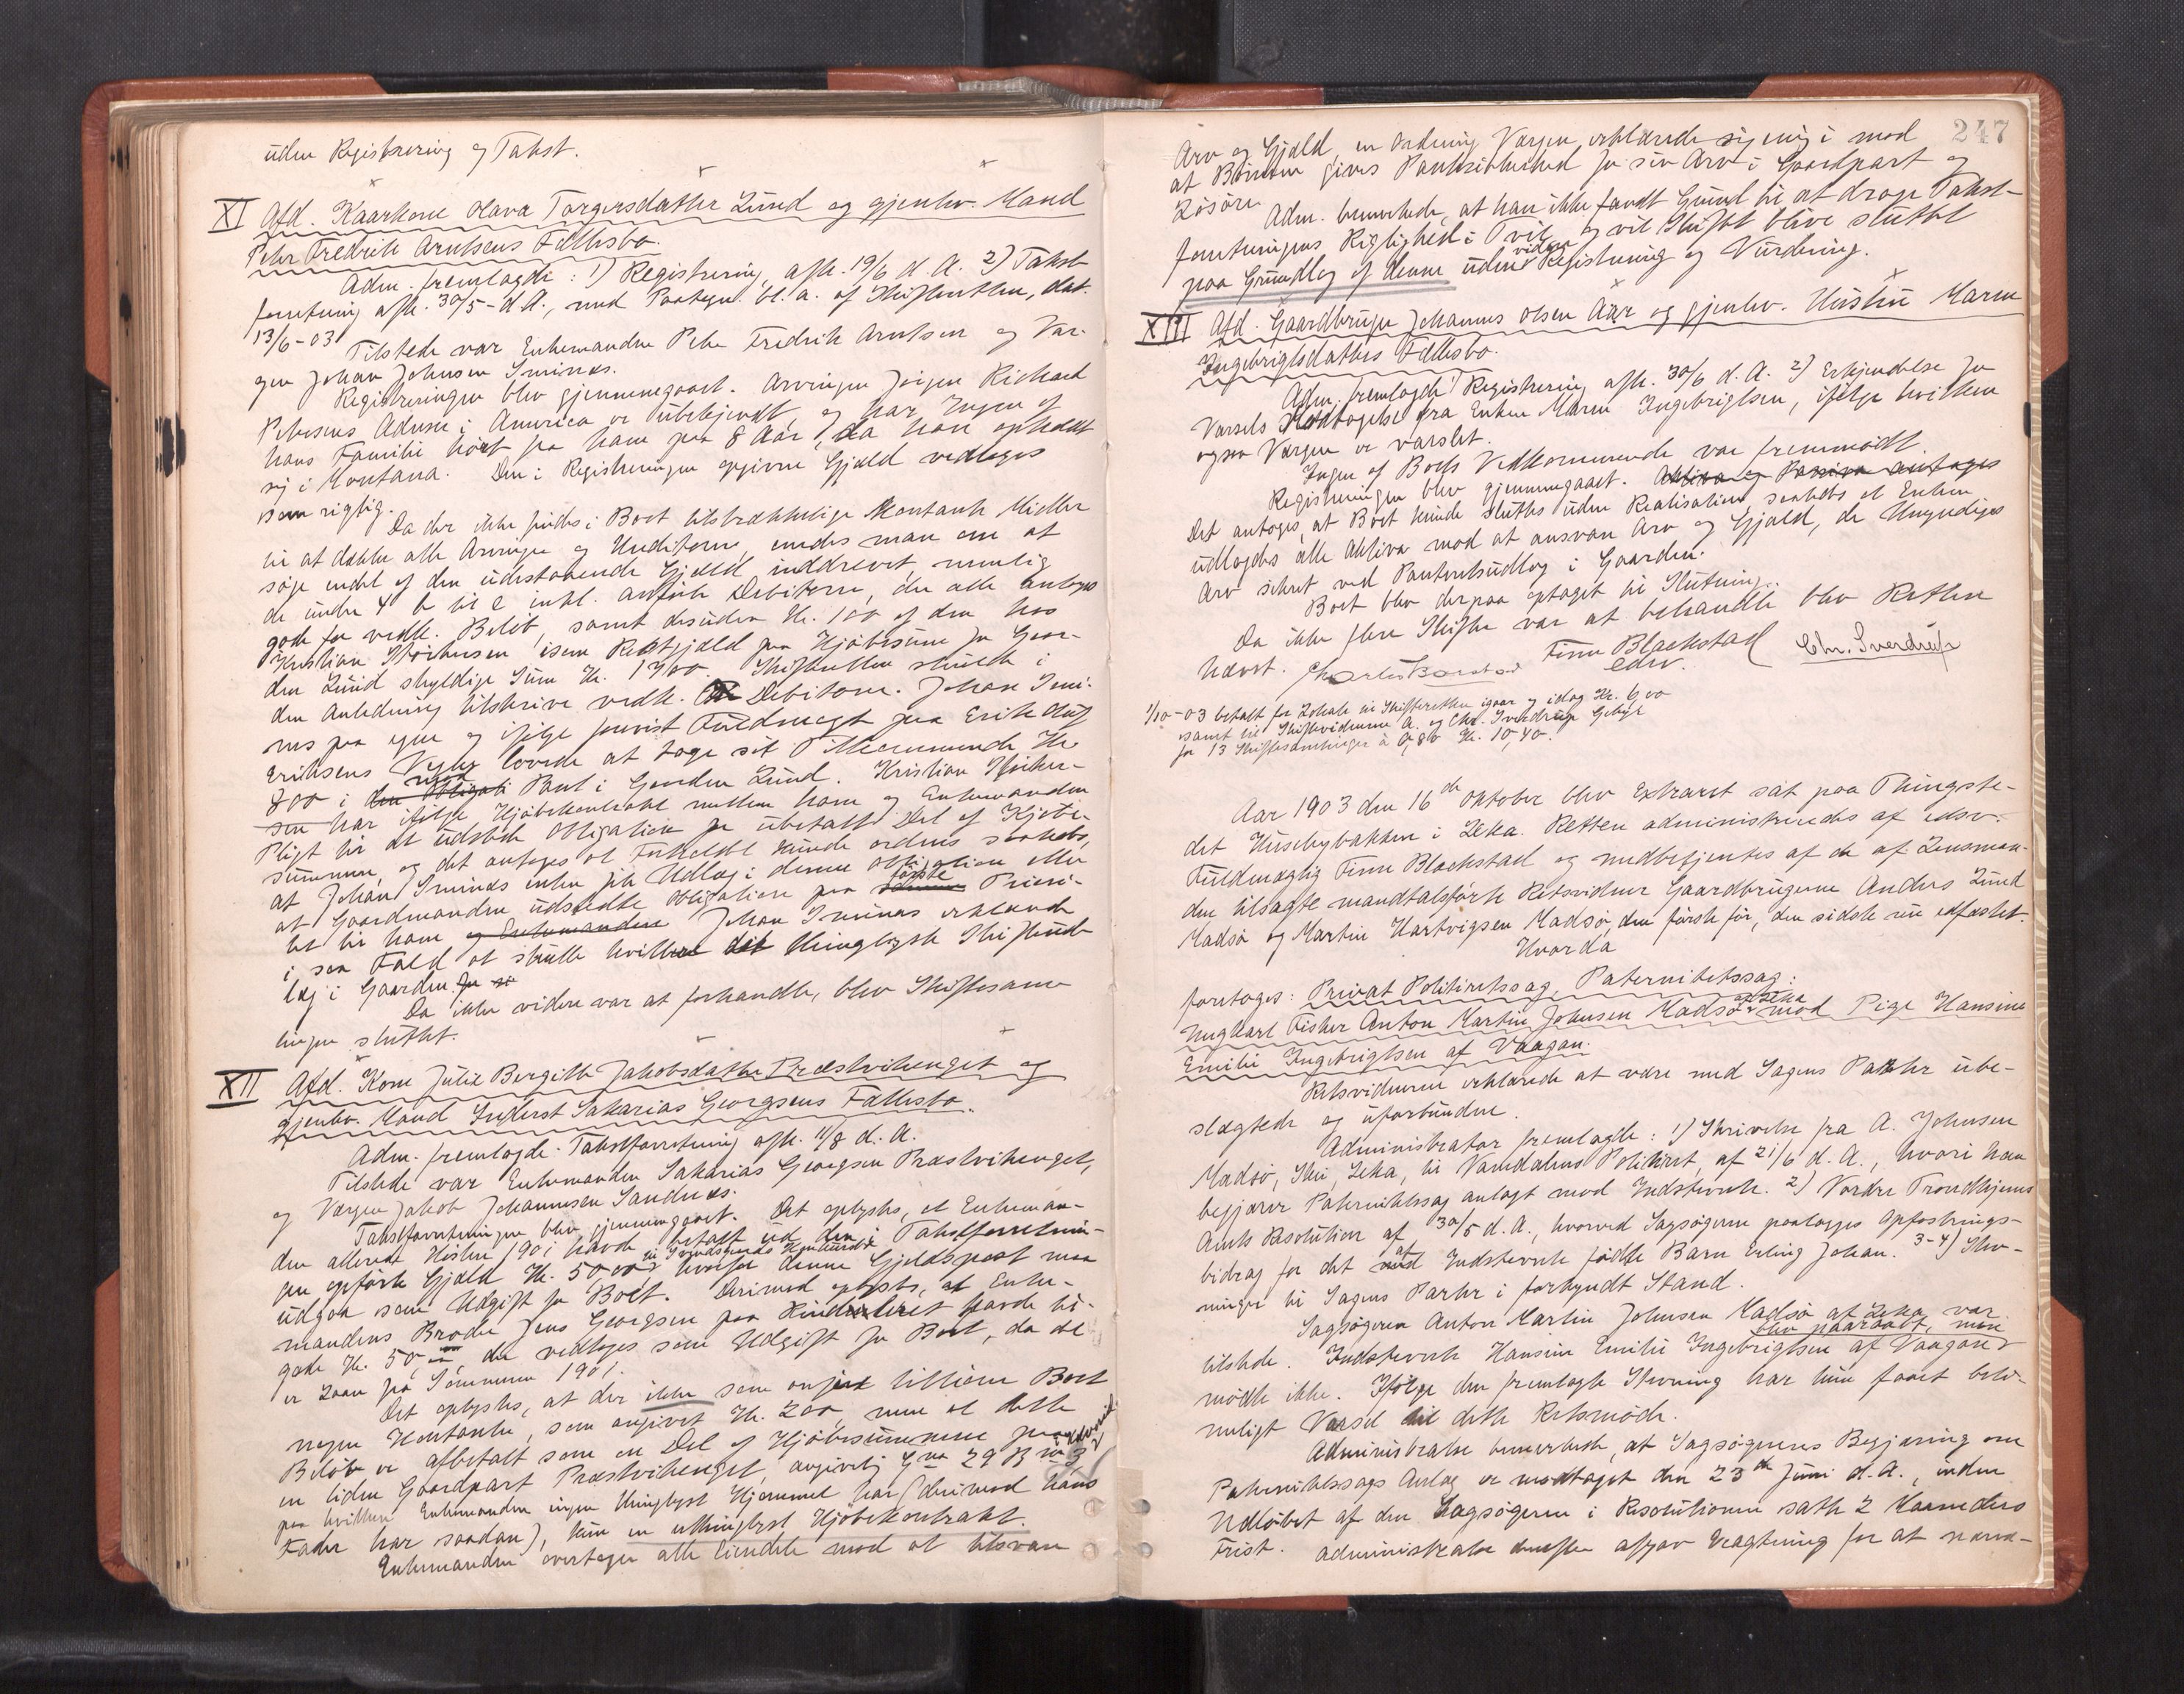 uden Registrering og Takst.
XI Afd. Kaarkone Hava Torgersdatter Lund og gjenlev. Mand
Peter Fredrik Arntsens Fællesbo.
Adm. fremlagde: 1) Registrering afh. 19/6 d. A. 2) Takst-
forretning afh. 30/5 - d. A., med Paategn. bl. a. af Skifteretten, dat.
13/6-03
Tilstede var Enkemanden Peter Fredrik Arntsen og Vær-
gen Johan Johnsen Smines.
Registreringen blev gjennemgaaet. Arvingen Jørgen Richard
Petersens Adresse i America er ubekjendt, og har Ingen af
hans Familie hørt fra ham paa 8 Aar, da han opholdt
sig i Montana. Den i Registreringen opgivne Gjæld vedtoges
som rigtig.
Da der ikke findes i Boet tilstrækkelige kontante Midler
til at dække alle Arvinger og Kreditorer, enedes man om at
søge endel af den udestaaende Gjæld inddrevet, nemlig
de under 4 b til e inkl. anførte Debitorer, der alle antages
gode for vedk. Beløb, samt desuden Kr. 100 af den hos
Kristian Isbrechtsen som Restgjæld paa Kjøbesum for Gaar-
den Lund skyldige Sum Kr. 1700. Skifteretten skulde i
den Anledning tilskrive vedk. Debitorer. Johan Smi-
nes paa egne og ifølge forevist Fuldmagt fra Erik Oluf
Eriksens Vegne lovede at tage sit Tilkommende Kr.
800 i den Obligati mod Pant i Gaarden Lund. Kristian
sen har ifølge Kjøbekontrakt mellem ham og Enkemanden
Pligt til at udstede Obligation for ubetalt Del af Kjøbe-
summen, og det antages at Forholdet kunde ordnes saaledes,
at Johan Smines enten fik Udlæg i denne Obligation eller
at Gaardmanden udstedte Obligation paa første Priori-
tet til ham og Enkemanden Johan Smines erklærede
i saa Fald at skulle kvittere det thinglyste Skifteud-
læg i Gaarden. for si
Da ikke videre var at forhandle, blev Skiftesam-
lingen sluttet.
XII Afd. Kone Julie Bergitte Jakobsdatter Præstvikenget og
gjenlev. Mand Inderst Sakarias Georgsens Fællesbo.
Adm. fremlagde Takstforretning afh. 11/8 d. A.
Tilstede var Enkemanden Sakarias Georgsen Præstvikenget,
og Værgen Jakob Johannesen Sandnes.
Takstforretningen blev gjennemgaaet. Det oplystes, at Enkeman-
den allerede Høsten 1901 havde betalt ud den i Takstforretnin-
gen opførte Gjæld Kr. 50,00 til hvorfor denne Gjeldspost maa
udgaa som Udgift for Boet. Derimod oplystes, at Enke-
mandens Broder Jens Georgsen paa havde til-
gode Kr. 50,00, der vedtoges som Udgift for Boet, da de
er Laan fra Sommeren 1901.
Det oplystes, at der ikke som anført tilhører Boet
nogen Kontanter, som angivet Kr. 200, men at dette
Beløb er afbetalt som en Del af Kjøbesummen for
en liden Gaardpart Præstvikenget, angivelig Gno 29 Bno 3
paa hvilken Enkemanden ingen thinglyst Hjemmel har (derimod hans
Fader har saadan), kun en uthinglyst Kjøbekontrakt.
Enkemanden overtager alle Eiendele mod at tilsvare
247
Arv og Gjæld, en Ordning Værgen erklærede sig enig i mod
at Børnene gives Pantesikkerhed for sin Arv i Gaardpart og
Løsøre.
Adm. bemærkede, at han ikke fandt Grund til at drage Takst-
forretningens Rigtighed i Tvil og vil Skiftet blive sluttet
paa Grundlag af denne uden videre Registrering og Vurdering.
XIII Afd. Gaardbruger Johannes Olsen Aar og gjenlev. Hustru Maren
Ingebrigtsdatters Fællesbo.
Adm. fremlagde Registrering afh. 30/6 d. A. 2) Erkjendelse for
Varsels Modtagelse fra Enken Maren Ingebrigtsen, ifølge hvilken
ogsaa Værgen er varslet.
Ingen af Boets Vedkommende var fremmødt.
Registreringen blev gjennemgaaet. Aktiva og Passiva antages
Det antoges, at Boet kunde sluttes uden Realisation saaledes at Enken
udlagdes alle Aktiva mod at ansvare Arv og Gjæld, de Umyndiges
Arv sikret ved Panteretsudlæg i Gaarden.
Boet blev derpaa optaget til Slutning.
Da ikke flere Skifter var at behandle blev Retten
hævet.
Finn Blackstad
edsv.
Chr. Sverdrup
1/10-03 betalt for Lokale til Skifteretten igaar og idag Kr. 6,00
samt til Skiftevidnerne A. og Chr. Sverdrup Gebyr
for 13 Skiftesamlinger à 0,80 Kr. 10,40.
Aar 1903 den 16de Oktober blev Extraret sat paa Thingste-
det Husebybakken i Leka. Retten administreredes af edsv.
Fuldmægtig Finn Blackstad og medbetjentes af de af Lensman-
den tilsagte mandtalsførte Retsvidner Gaardbrugerne Anders Lund
Madsø og Martin Hartvigsen Madsø, den første før, den sidste nu edfæstet.
Hvorda
foretoges: Privat Politiretssag, Paternitetssag:
Ungkarl Fisker Anton Martin Johnsen Madsø af Leka mod Pige Hansine
Emilie Ingebrigtsen af Vaagan.
Retsvidnerne erklærede at være med Sagens Parter ube-
slægtede og uforbundne.
Administrator fremlagde: 1) Skrivelse fra A. Johnsen
Madsø, Skei, Leka, til Namdalens Politiret, af 21/6 d. A., hvori han
begjærer Paternitetssag anlagt mod Indstevnte. 2) Nordre Trondhjems
Amts Resolution af 30/5 d. A., hvorved Sagsøgeren paalægges Opfostrings-
bidrag for det af Indstevnte fødte Barn Erling Johan. 3-4) Stev-
ninger til Sagens Parter i forkyndt Stand.
Sagsøgeren Anton Martin Johnsen Madsø af Leka var
tilstede. Indstevnte Hansine Emilie Ingebrigtsen af Vaagan blev paaraabt, men
mødte ikke. Ifølge den fremlagte Stevning har hun faaet belø-
neligt Varsel til dette Retsmøde.
Administrator bemærkede, at Sagsøgerens Begjæring om
Paternitetssags Anlæg er modtaget den 23de Juni d. A., inden
Udløbet af den Sagsøgeren i Resolutionen satte 2 Maaneders
Frist. Administrator derefter afgav Beagtning for at nærvæ-